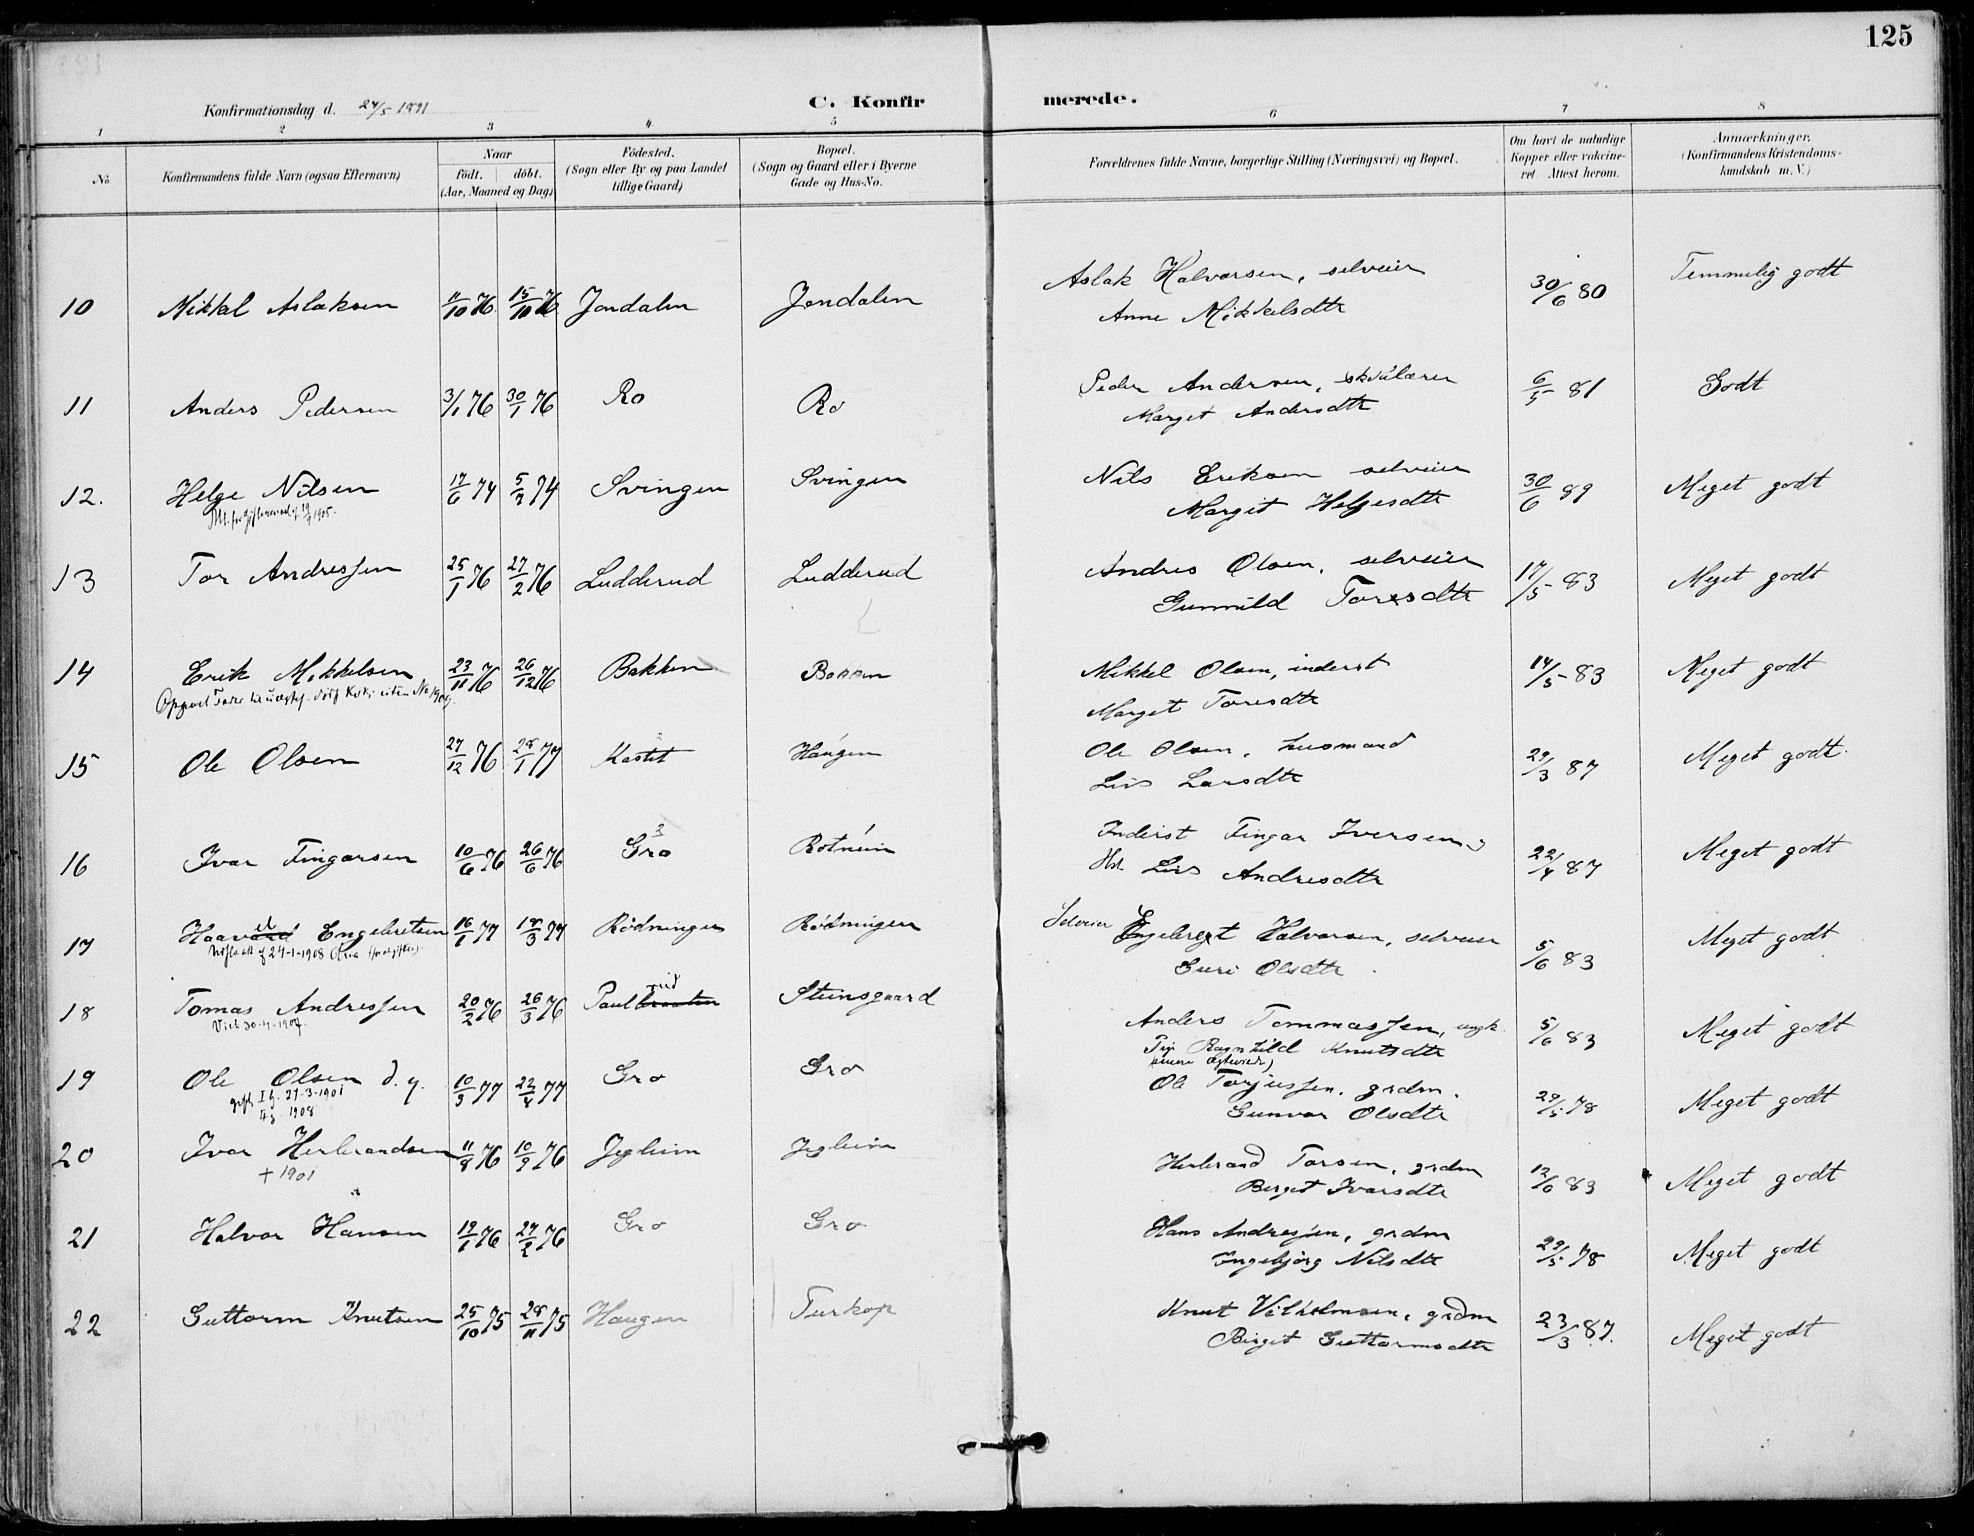 125
Konfirmationsdag d. 24/5 1891
C. Konfirmerede.
1 2 3 4 5 6 7 8
No.
Konfirmandens fulde Navn (ogsaa Efternavn)
Naar
født. døbt.
(Aar, Maaned og Dag)
Födested.
(Sogn eller By og paa Landet
tillige Gaard)
Bopæl.
(Sogn og Gaard eller i Byerne
Gade og Hus-No.
Forældrenes fulde Navne, borgerlige Stilling (Næringsvei) og Bopæl.
Om havt de naturlige
Kopper eller vakcine-
ret Attest herom.
Anmærkninger.
(Konfirmandens Kristendoms-
kundskab m. V.)
10 Mikkel Aslaksen 11/10 76 15/10 76 Jondalen Jondalen Aslak Halvorsen, selveier 30/6 80 Temmelig godt
Anne Mikkelsdtr
11 Anders Pedersen 3/1 76 30/1 76 Ro Ro Peder Andersen, skolelærer 6/5 81 Godt
Marget Andersdtr
12. Helge Nilsen 17/6 74 5/7 74 Svingen Svingen Nils Eriksen selveier 30/6 89 Meget godt
1905.
Margit Helgesdtr
13 Tor Andressen 25/1 76 27/2 76 Ludderud Ludderud Andres Olsen, selveier 17/5 83 Meget godt
Gunnild Toresdtr
14 Erik Mikkelsen 23/11 76 26/12 76 Bakken Bakken Mikkel Olsen, inderst 14/5 83 Meget godt
Marget Toresdtr
15 Ole Olsen 27/12 76 28/1 77 Kastet Haugen Ole Olsen, husmand 29/3 87 Meget godt.
Livs Larsdtr
16 Ivar Fingarsen 10/6 76 26/6 76 Gro Inderst Fingar Iversen 22/4 87 Meget godt
Hst Livs Andresdtr
17 Haavard Engebretsen 16/1 77 18/3 77 Rödningen Rödningen Selveier Engebregt Halvorsen, selveier 5/6 83 Meget godt
24-1-1908
Guri Olsdtr
18 Tomas Andressen 20/2 76 26/3 76 Paulbraaten rud Steinsgaard Anders Tommassen, ungk. 5/6 83 Meget godt
Viet 30-4-1907.
Pige Ragnhild Knutsdtr
19 Ole Olsen d. y. 10/3 77 22/4 77 Gro Gro Ole Torjussen, grdm. 29/5 78 Meget godt
gift I g. 27-3-1901
II g. 1908
Gunvor Olsdtr
20 Ivar Herbrandsen 11/8 76 10/9 76 Jegleim Jegleim Herbrand Torsen, grdm 12/6 83 Meget godt
+ 1901
Berget Ivarsdtr
21 Halvor Hansen 19/1 76 27/2 76 Gro Gro Hans Andressen, grdm 29/5 78 Meget godt
Ingebjörg Nilsdtr
22 Guttorm Knutsen 25/10 75 28/11 75 Haugen Turkop Knut Vilhelmsen, grdm 23/3 87. Meget godt
Birget Guttormsdtr